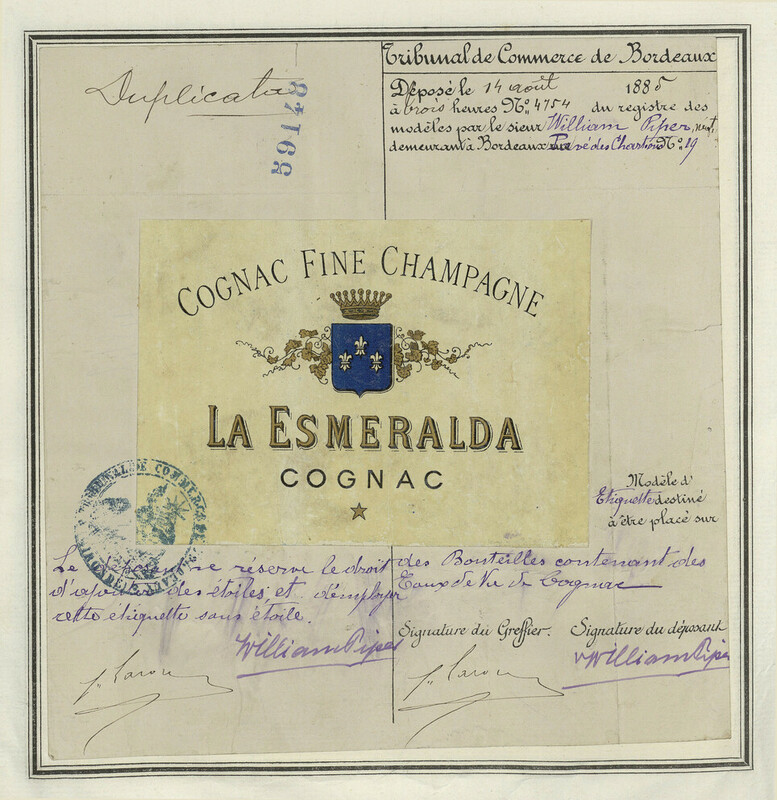 Duplicata
59147
Tribunal de Commerce de Bordeaux
Déposé le 14 août 1885
à trois heures No. 4754 du registre des
modèles par le sieur William Piper, nért,
demeurant à Bordeaux Pavé des Chartrons No. 19
COGNAC FINE CHAMPAGNE
LA ESMERALDA
COGNAC
Modèle d'
Etiquette destiné
à être placé sur
des Bouteilles contenant des
Eaux de Vie de Cognac
TRIBUNAL DE COMMERCE
Le déposant se réserve le droit
d'ajouter des étoiles, et d'employer
cette étiquette sans étoile.
William Piper
Signature du Greffier.
Signature du déposant
William Piper